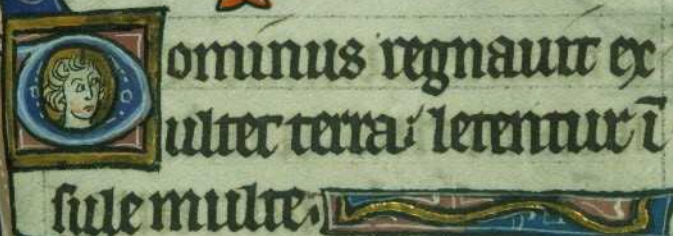 Dominus regnauit ex
ultet terra; letentur ī
sule multe;